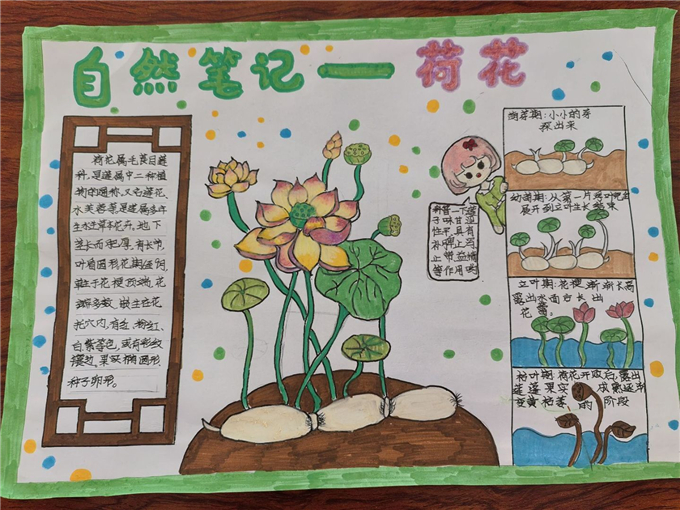 自然笔记——荷花
荷花属毛茛目莲
科,是莲属中二种植
物的通称,又名莲花,
水芙蓉等。是莲属多年
生水生草本花卉。地下
茎长而肥厚,有长节,
叶盾圆形花期
生于花梗顶端,花
瓣多数,嵌生在花
托穴内,有红、粉红、
白、紫等色,或有彩纹
镶边,果实椭圆形,
种子卵形。
科普一下莲
子味甘涩
性平,具有
补脾止泻
止带益肾
等作用哦
萌芽期:小小的芽
探出来
幼苗期:从第一片
展开到立叶生长结束
立叶期:花梗渐渐长高
露出水面也长出
花蕾。
枯叶期:荷花开败后,露出
莲蓬果实
变黄枯萎,的阶段